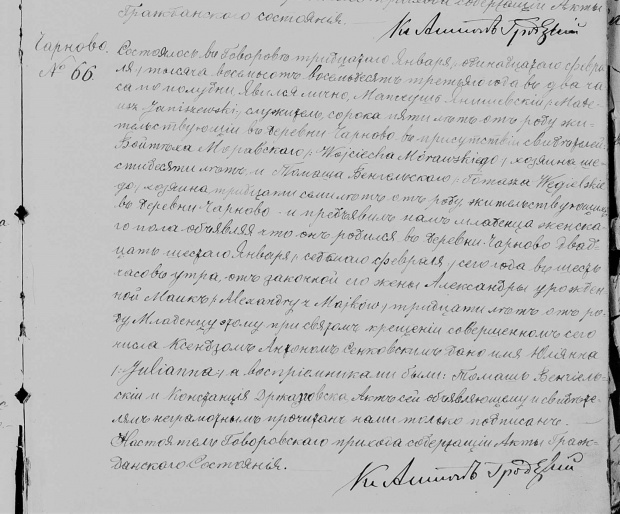 Гражданского состоянія.
Кс Антонъ Гродзкий
Чарново.
№ 66
Состоялось въ Говоровѣ тридцатаго Января, одинадцатаго февра-
ля, тысяча восемьсотъ восемьдесятъ третьяго года въ два ча-
са по полудни. Явился лично, Матеушъ Янишевскій /: Mate-
usz Janiszewski:/ служитель, сорока пяти лѣтъ отъ роду жи-
тельствующій въ деревни Чарново въ присутствіи свидѣтелей
Войтѣха Моравскаго /: Wojciecha Morawskiego :/ хозяина ше-
стидесяти лѣтъ и Томаша Венгельскаго /: Tomasza Węgielskie-
go :/ хозяина тридцати семи лѣтъ отъ роду жительствующихъ
въ деревни Чарново и предъявилъ намъ младенца женска-
го пола объявляя что онъ родился въ деревни Чарново двад-
цать шестаго Января, седьмаго февраля, сего года въ шесть
часовъ утра, отъ законной его жены Александры урожден-
ной Маикъ /: Alexandry z Majków :/ тридцати лѣтъ отъ ро-
ду Младенцу этому при святомъ крещеніи совершенномъ сего
числа Ксендзомъ Антономъ дано имя Юліянна
/: Julianna :/ а воспріемниками были: Томашъ Венгіель-
скій и Констанція Актъ сей объявляющему и свидѣте-
лямъ неграмотнымъ прочитанъ нами только подписанъ.
Настоятель Говоровскаго прихода содержащій Акты Граж-
данскаго Состоянія.
Кс Антонъ Гродзкий